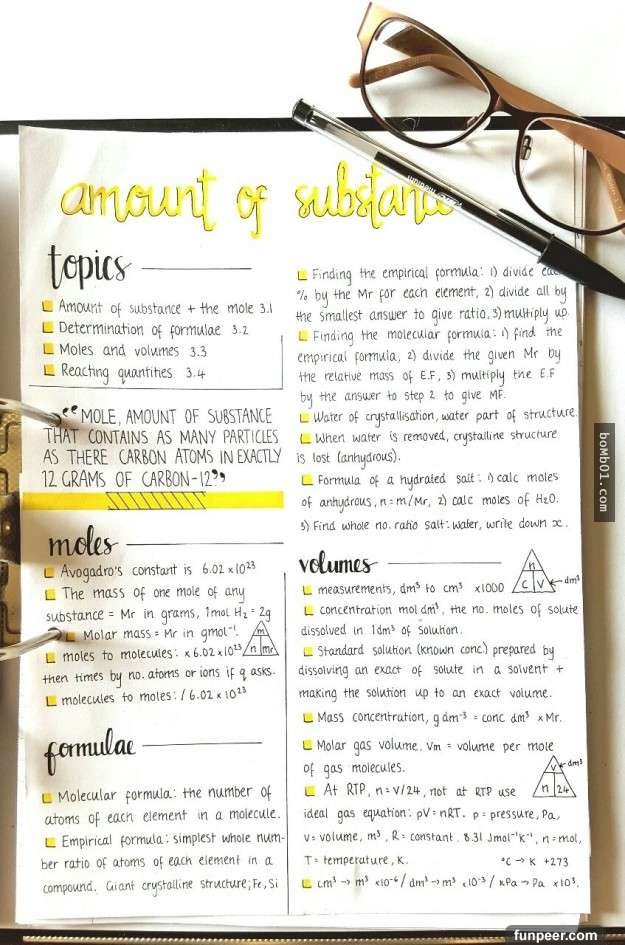 amount of substance
topics
Amount of substance + the mole 3.1
Determination of formulae 3.2
Moles and volumes 3.3
Reacting quantities 3.4
“MOLE, AMOUNT OF SUBSTANCE
THAT CONTAINS AS MANY PARTICLES
AS THERE CARBON ATOMS IN EXACTLY
12 GRAMS OF CARBON-12”
moles
Avogadro's constant is 6.02 x 10²³
The mass of one mole of any
substance = Mr in grams, 1mol H₂ = 2g
Molar mass = Mr in gmol⁻¹.
m
moles to molecules: x 6.02 x 10²³
n mr
then times by no. atoms or ions if q asks.
molecules to moles: / 6.02 x 10²³
formulae
Molecular formula: the number of
atoms of each element in a molecule.
Empirical formula: simplest whole num-
ber ratio of atoms of each element in a
compound. Giant crystalline structure; Fe, Si
Finding the empirical formula: 1) divide
% by the Mr for each element, 2) divide all by
the smallest answer to give ratio, 3) multiply up.
Finding the molecular formula: 1) find the
empirical formula, 2) divide the given Mr by
the relative mass of E.F, 3) multiply the E.F
by the answer to step 2 to give MF.
Water of crystallisation, water part of structure.
When water is removed, crystalline structure
is lost (anhydrous).
Formula of a hydrated salt: 1) calc moles
of anhydrous, n = m/Mr, 2) calc moles of H₂O.
3) Find whole no. ratio salt: water, write down x.
volumes
n
C V dm³
measurements, dm³ to cm³ x1000
concentration mol dm³, the no. moles of solute
dissolved in 1dm³ of solution.
Standard solution (known conc) prepared by
dissolving an exact of solute in a solvent +
making the solution up to an exact volume.
Mass concentration, g dm⁻³ = conc dm³ x Mr.
Molar gas volume, Vm = volume per mole
of gas molecules.
V dm³
n 24
At RTP, n = V/24, not at RTP use
ideal gas equation: pV = nRT. p = pressure, Pa,
V = volume, m³, R = constant. 8.31 Jmol⁻¹K⁻¹, n = mol,
T = temperature, K. °C → K +273
cm³ → m³ x10⁻⁶ / dm³ → m³ x10⁻³ / kPa → Pa x 10³.
boMb01.com
funpeer.com